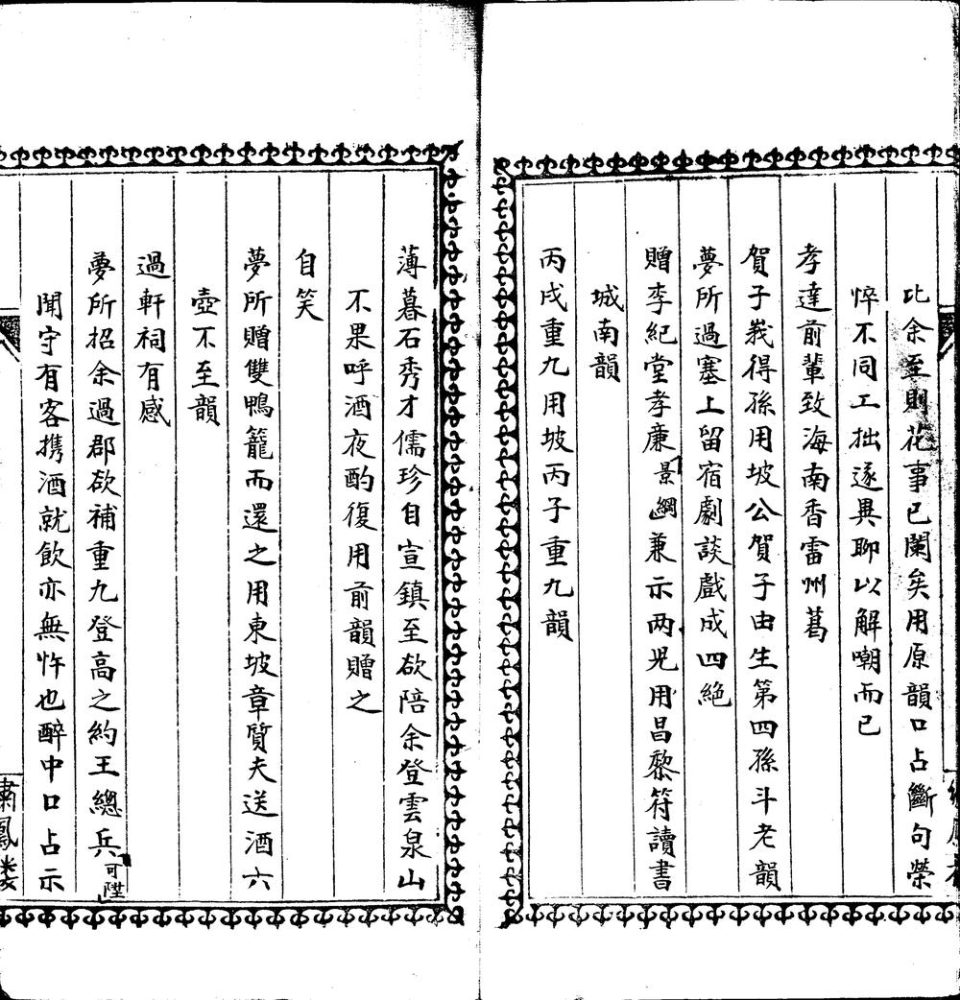 比余至則花事已闌矣用原韻口占斷句榮
悴不同工拙遂異聊以解嘲而已
孝達前輩致海南香雷州葛
賀子峩得孫用坡公賀子由生第四孫斗老韻
夢所過塞上留宿劇談戲成四絶
贈李紀堂孝廉景綱兼示两兒用昌黎符讀書
城南韻
丙戌重九用坡丙子重九韻
薄暮石秀才儒珍自宣鎮至欲陪余登雲泉山
不果呼酒夜酌復用前韻贈之
自笑
夢所贈雙鴨籠而還之用東坡章質夫送酒六
壺不至韻
過軒祠有感
夢所招余過郡欲補重九登高之約王總兵可陞
聞守有客携酒就飲亦無忤也醉中口占示